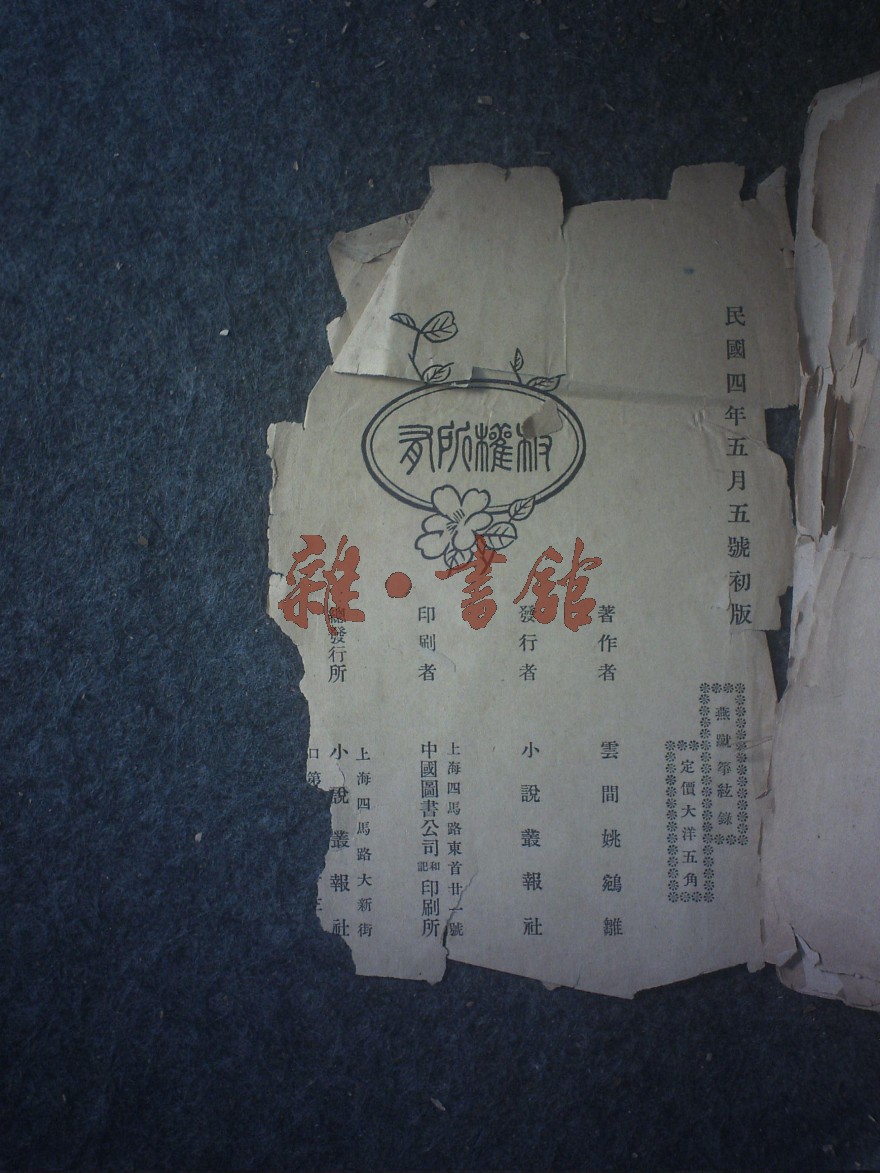 民國四年五月五號初版
燕蹴箏絃錄
定價大洋五角
著作者 雲間姚鵷雛
發行者 小說叢報社
上海四馬路東首廿一號
印刷者 中國圖書公司和記印刷所
上海四馬路大新街
總發行所 小說叢報社
口第
版權所有
雜·書館